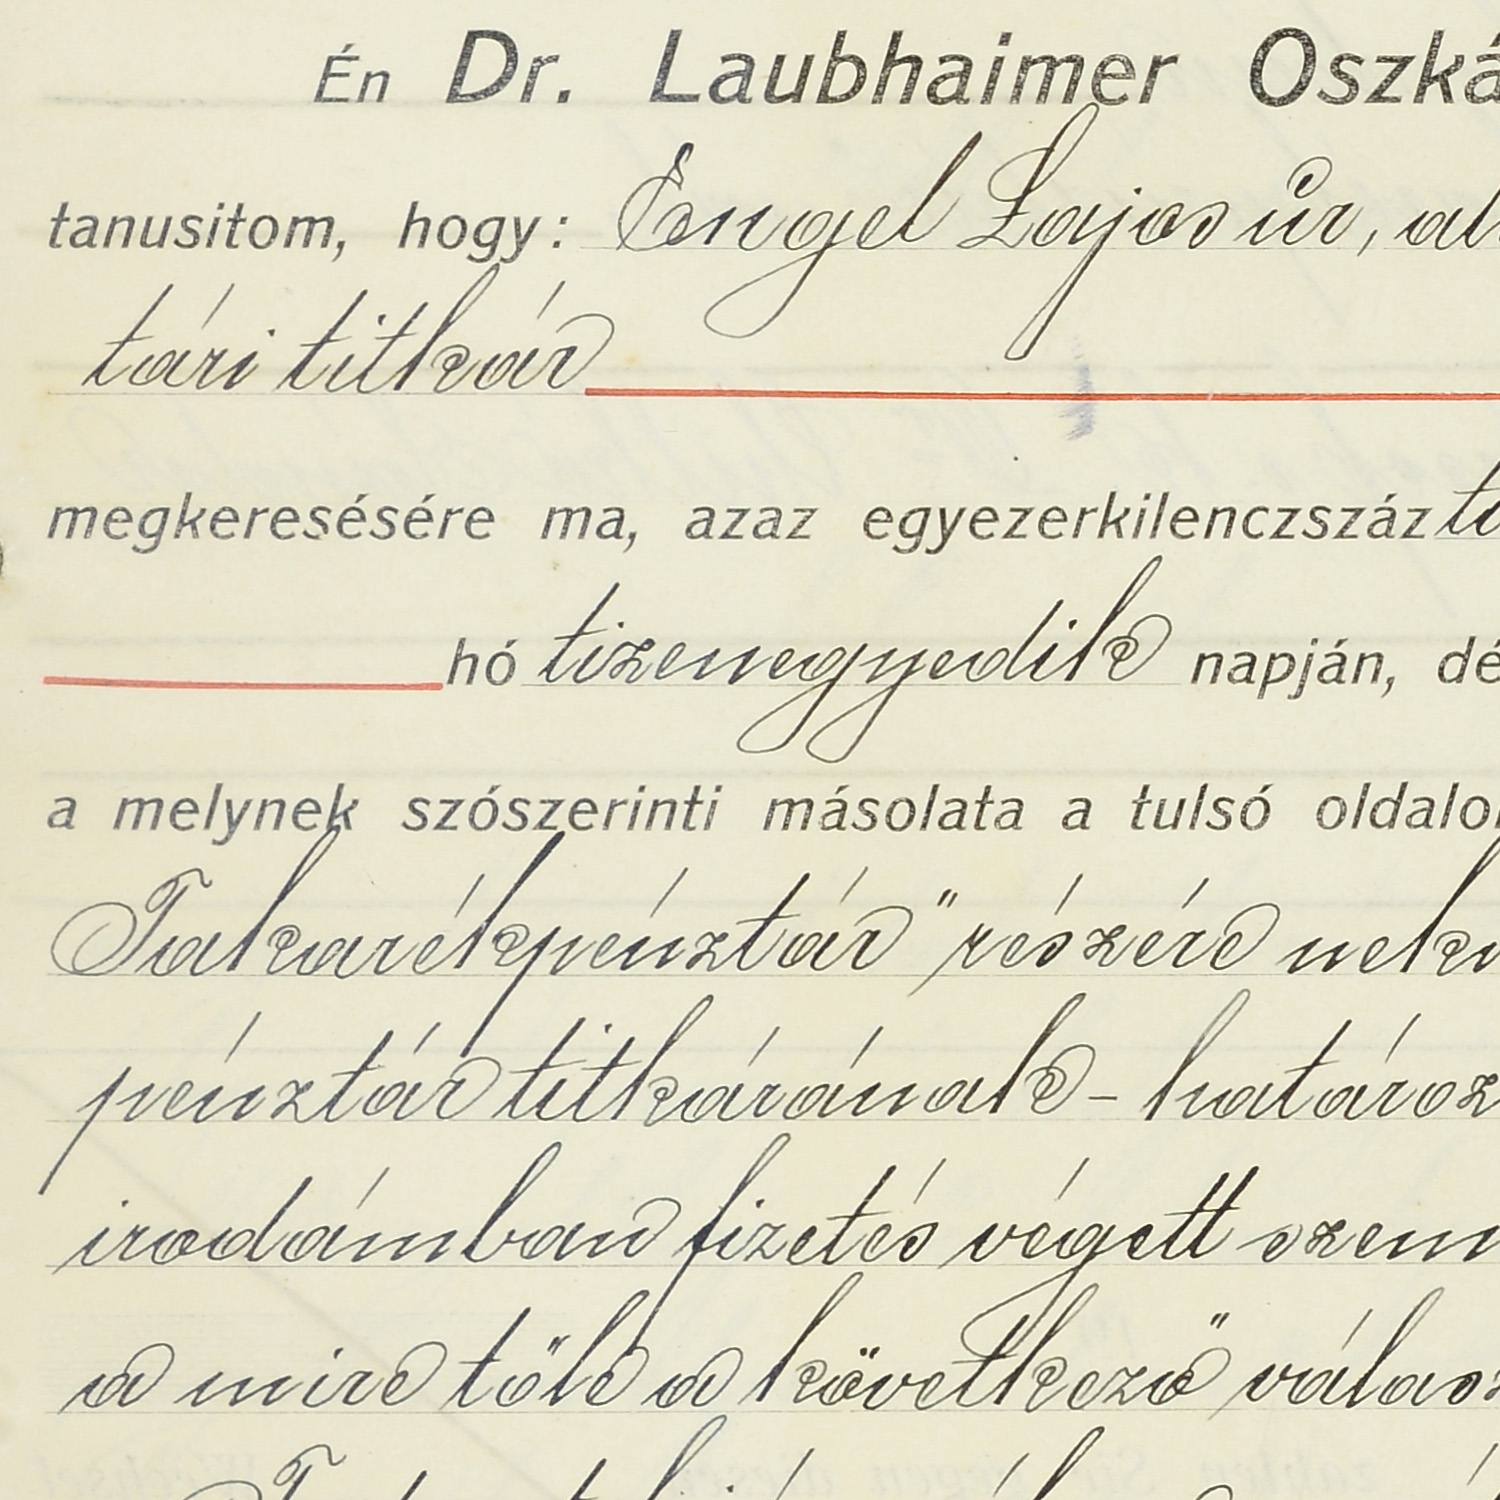 Én Dr. Laubhaimer Oszká
tanusitom, hogy: Engel Lajos úr, al
tári titkár
megkeresésére ma, azaz egyezerkilenczszáz ti
hó tizenegyedik napján, dé
a melynek szószerinti másolata a tulsó oldalo
Takarékpénztár" részére nek
pénztár titkárának - határoz
irodámban fizetés végett szem
a mire tőle a következő válasz